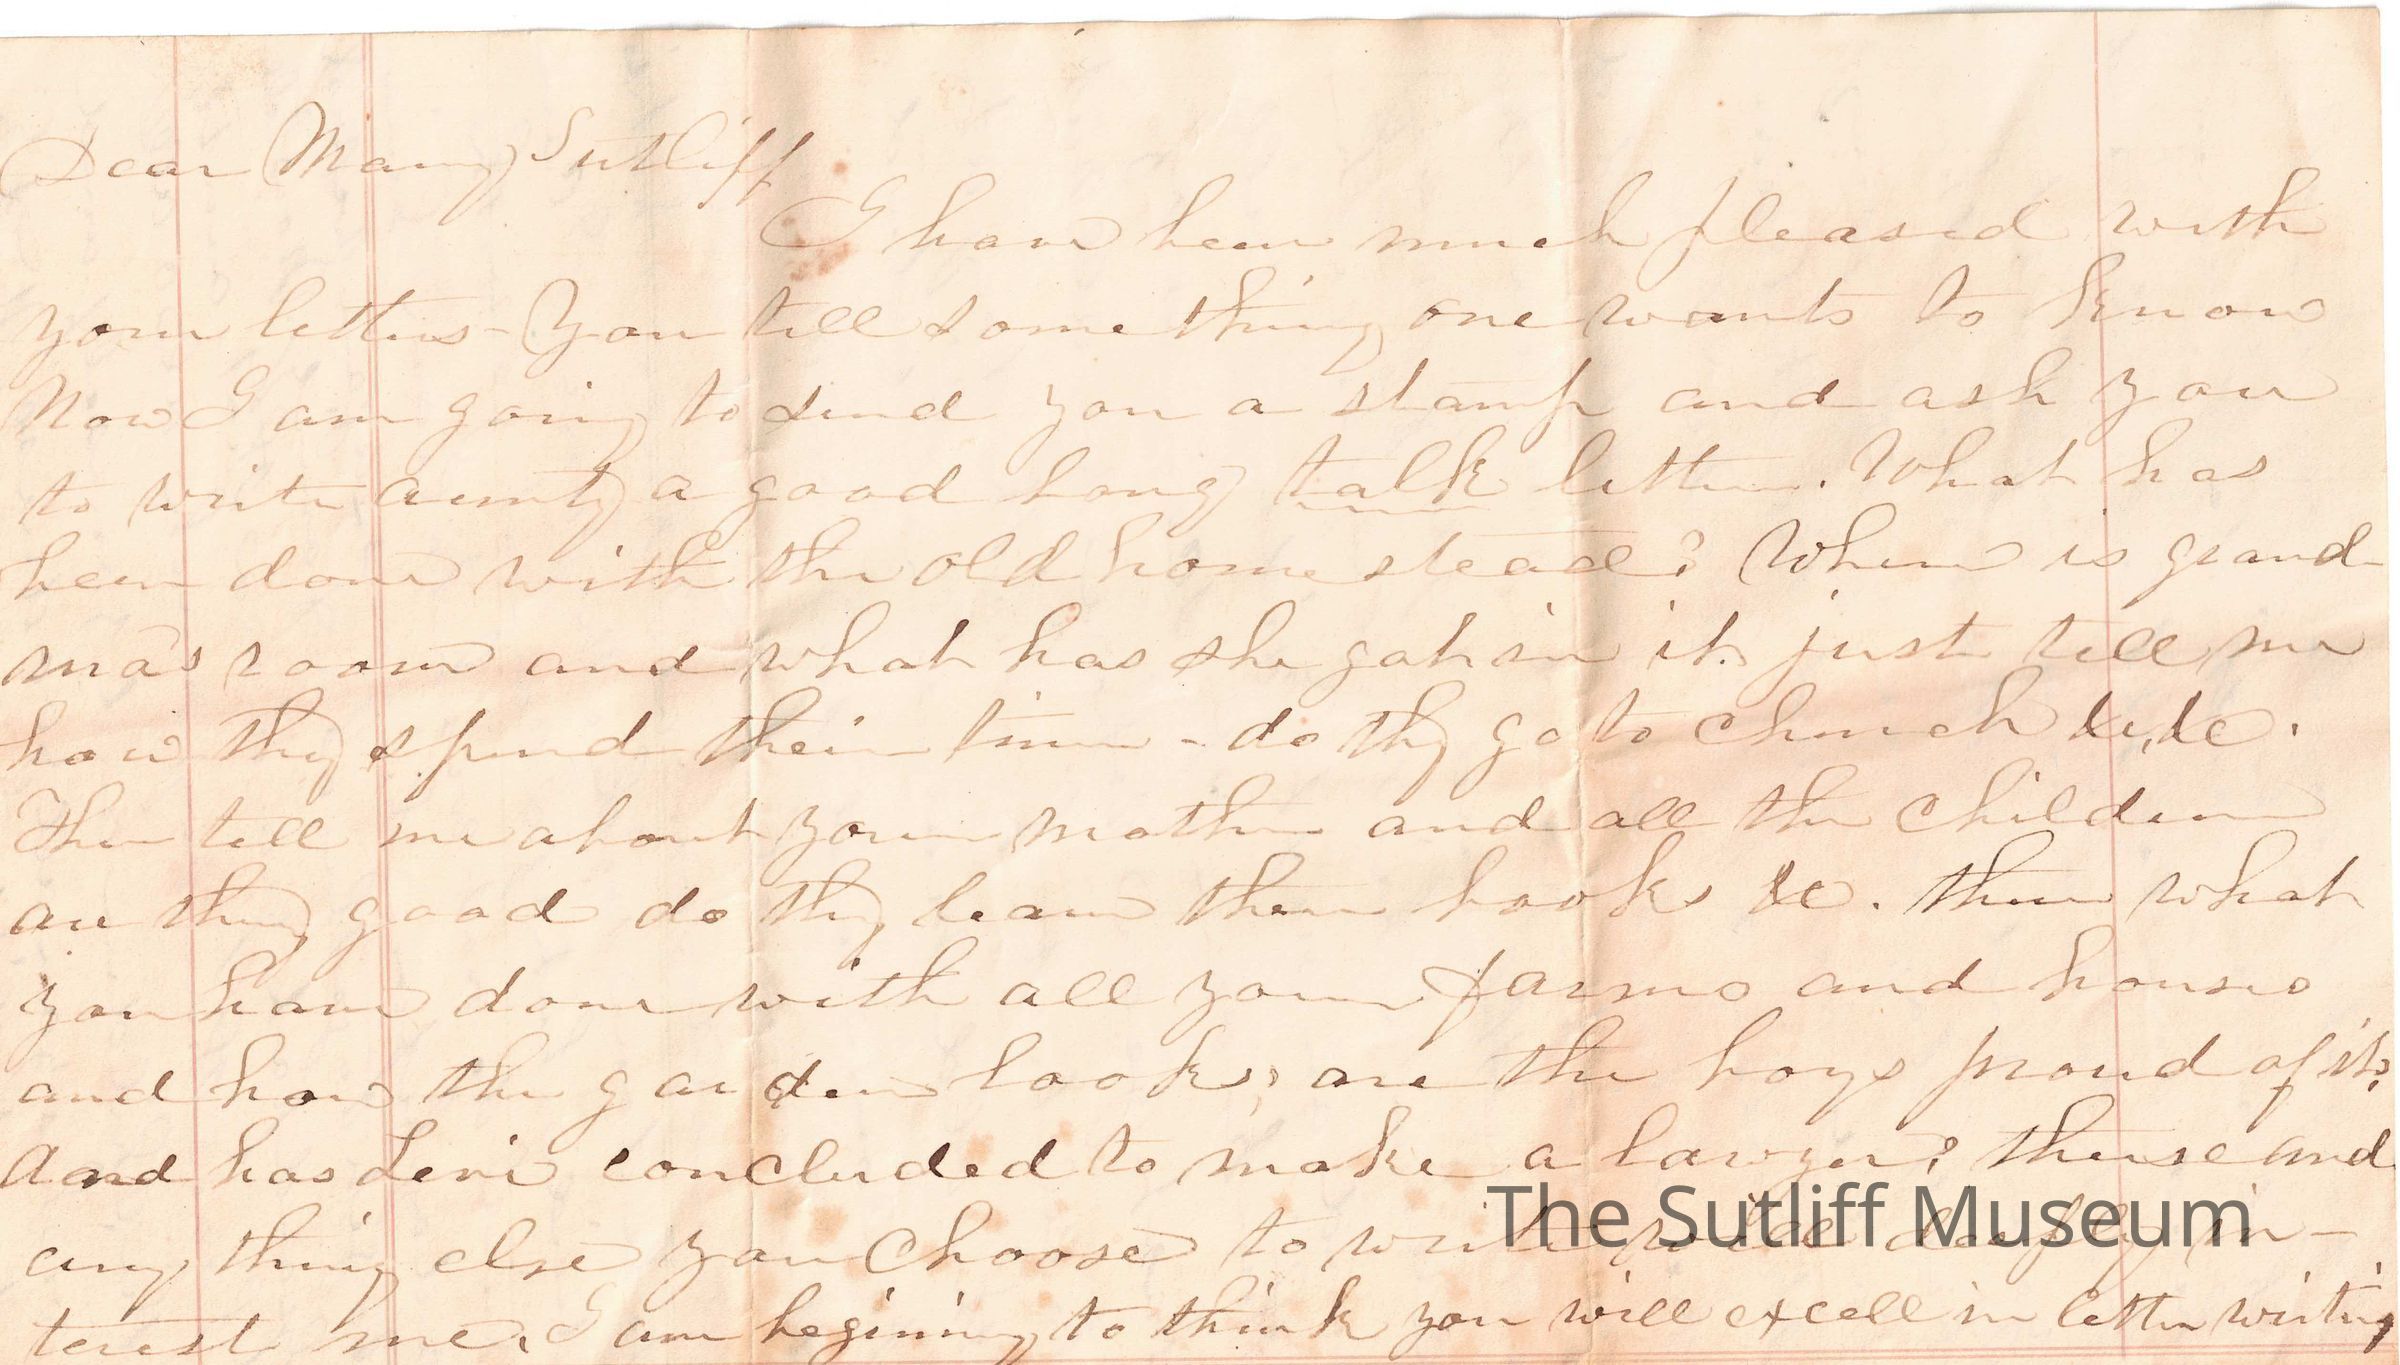 Dear Mary Sutliff
I have been much pleased with
your letters - You tell something one wants to know
Now I am going to send you a stamp and ask you
to write aunty a good long talk letter. What has
been done with the old homestead? Where is grand-
ma's room and what has she got in it. just tell me
how they spend their time - do they go to church &c, &c.
Then tell me about your mother and all the children
are they good do they learn their books &c. then what
you have done with all your farms and houses
and how the garden looks, are the boys proud of it?
And has Levi concluded to make a lawyer? these and
any thing else you choose to write will deeply in-
terest me. I am begining to think you will excell in letter writing
The Sutliff Museum